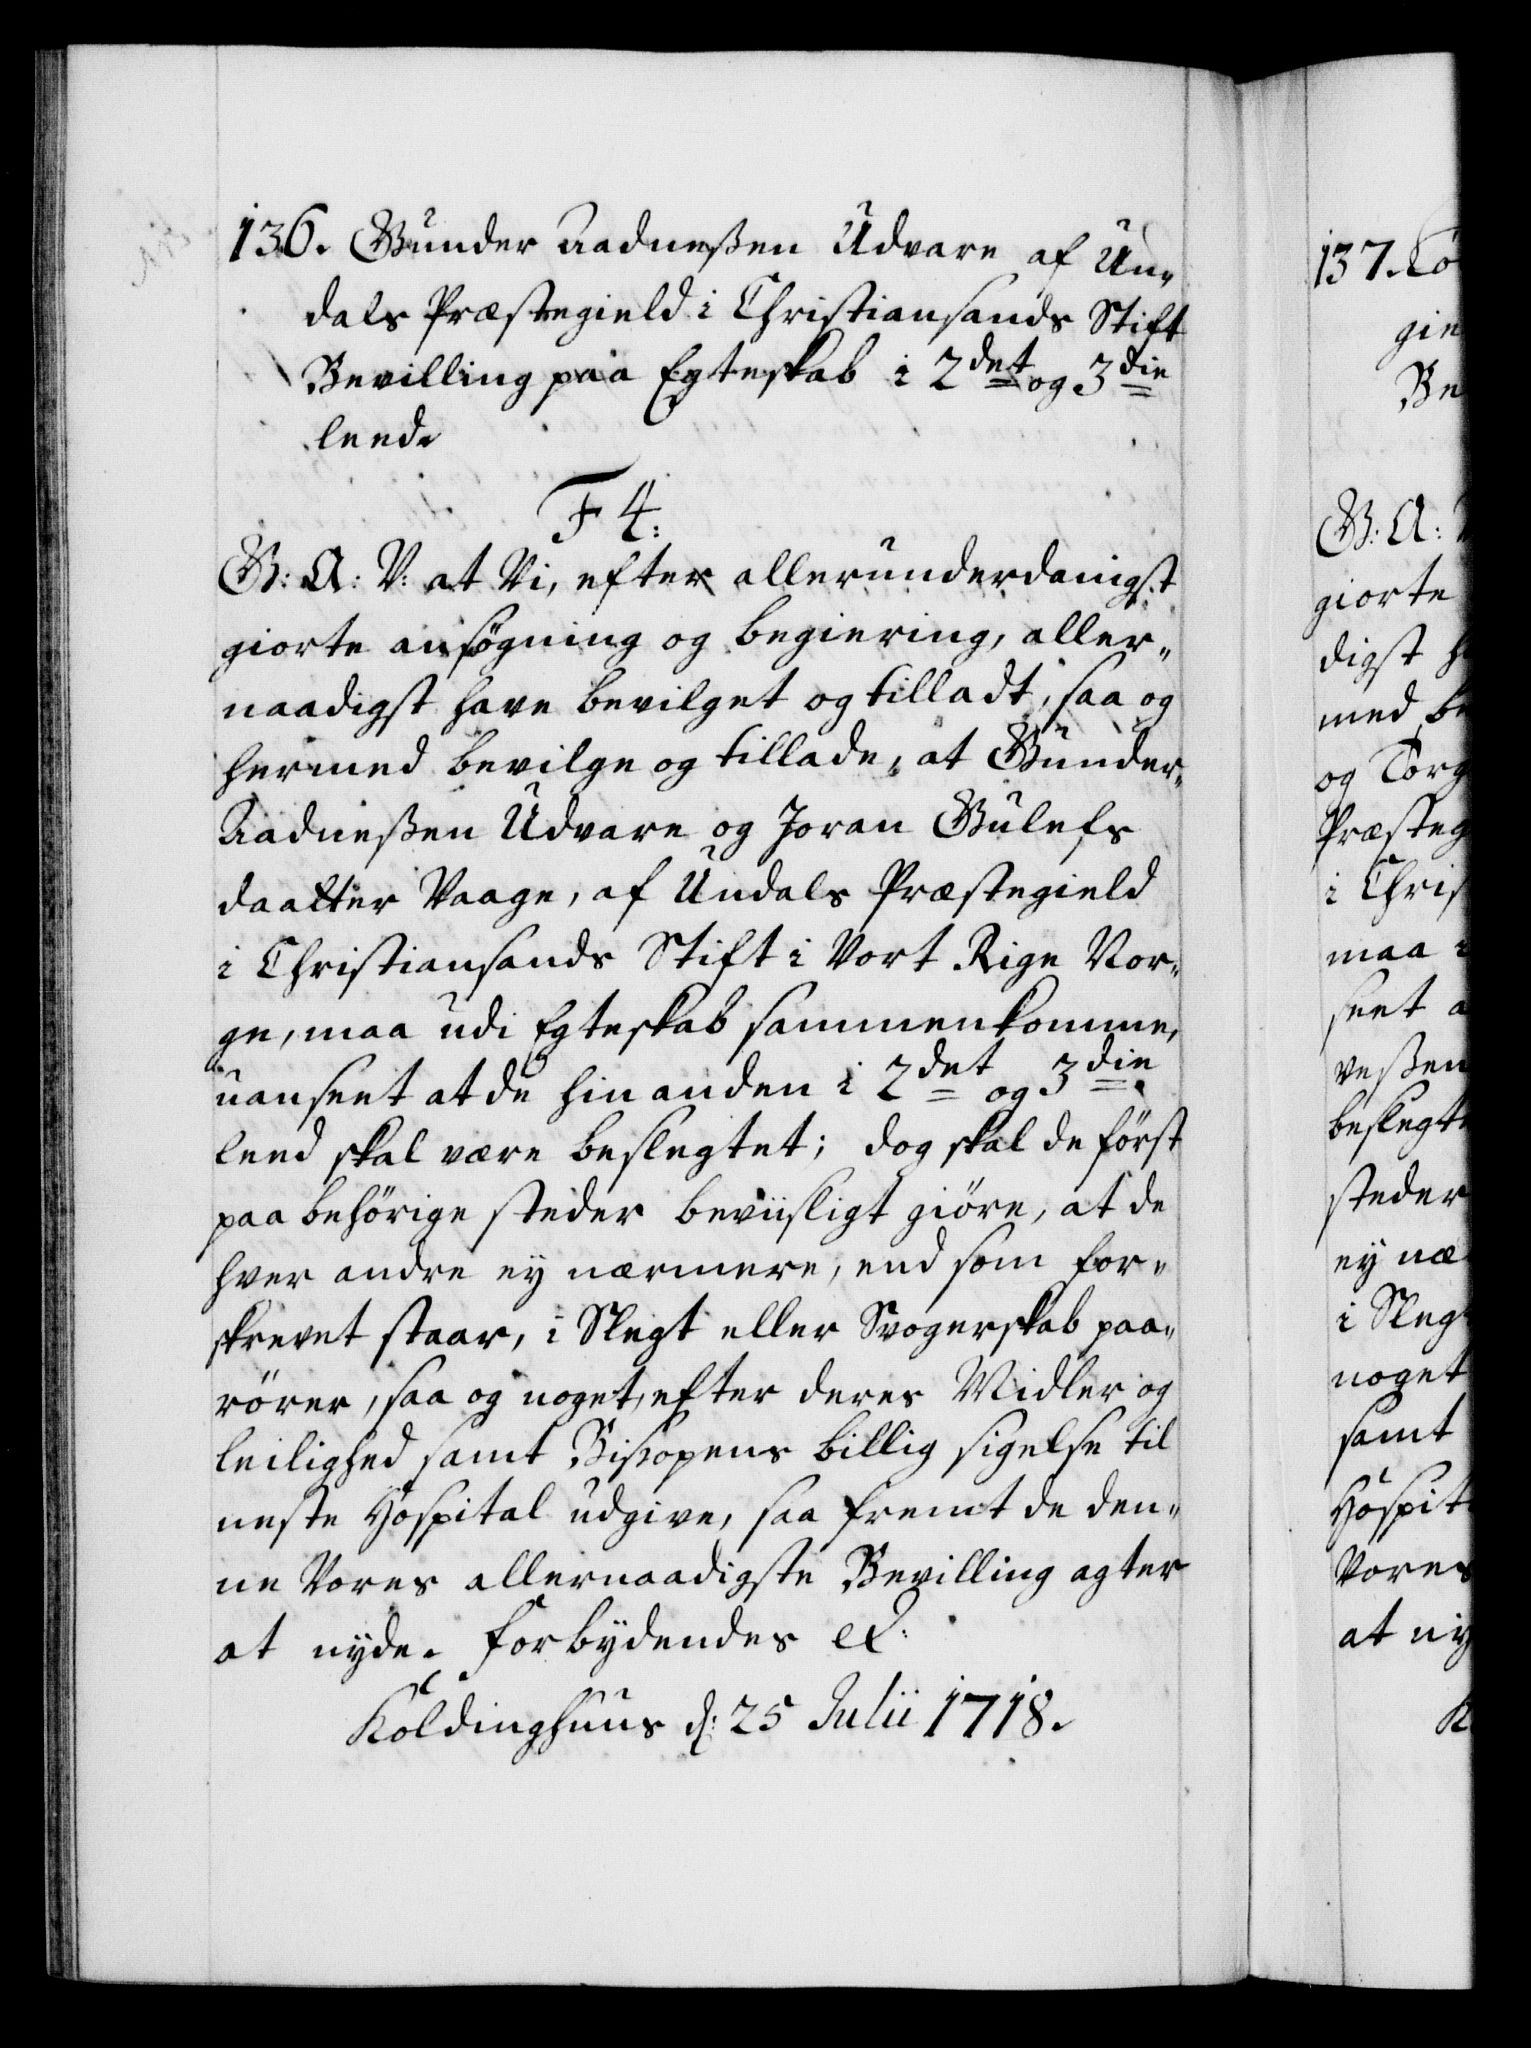 136. Gunder Aadneßen Udvare af Un„
dals Præstegield i Christiansands Stift
Bevilling paa Egteskab i 2det og 3die
leed.
F 4:
G: A: V: at Vi, efter allerunderdanigst
giorte ansøgning og begiering, aller„
naadigst have bevilget og tilladt, saa og
hermed bevilge og tillade, at Gunder„
Aadneßen Udvare og Joran Gulefs
daatter Vaage, af Undals Præstegield
i Christiansands Stift i Vort Rige Nor„
ge, maa udi Egteskab sammenkomme,
uanseet at de hinanden i 2det og 3die
leed skal være beslegtet; dog skal de först
paa behörige steder beviisligt giöre, at de
hver andre ey nærmere, end som for„
skrevet staar, i Slegt eller Svogerskab paa„
rörer, saa og noget, efter deres Midler og
leilighed samt Bispens billig sigelse til
neste Hospital udgive, saa fremt de den„
ne Vores allernaadigste Bevilling agter
at nyde. Forbydendes &:
Koldinghuus d: 25 Julii 1718.
137. To
gie
Be
G: A:
giorte
digst h
med be
og Torg
Præsteg
i Chris
maa i
seet a
veßen
beslegt
steder
ey næ
i Sleg
noget
samt
Hospit
Vores
at ny
K